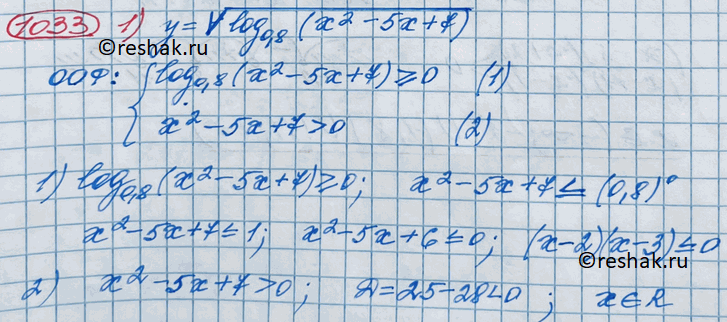 1033 1) y = √log₀,₈ (x² - 5x + 7)
©reshak.ru
ООФ: { log₀,₈ (x² - 5x + 7) ⩾ 0 (1)
x² - 5x + 7 > 0 (2)
1) log₀,₈ (x² - 5x + 7) ⩾ 0; x² - 5x + 7 ≤ (0,8)⁰
x² - 5x + 7 ≤ 1; x² - 5x + 6 ≤ 0; (x - 2)(x - 3) ≤ 0
©reshak.ru
2) x² - 5x + 7 > 0; D = 25 - 28 < 0; x ∈ R